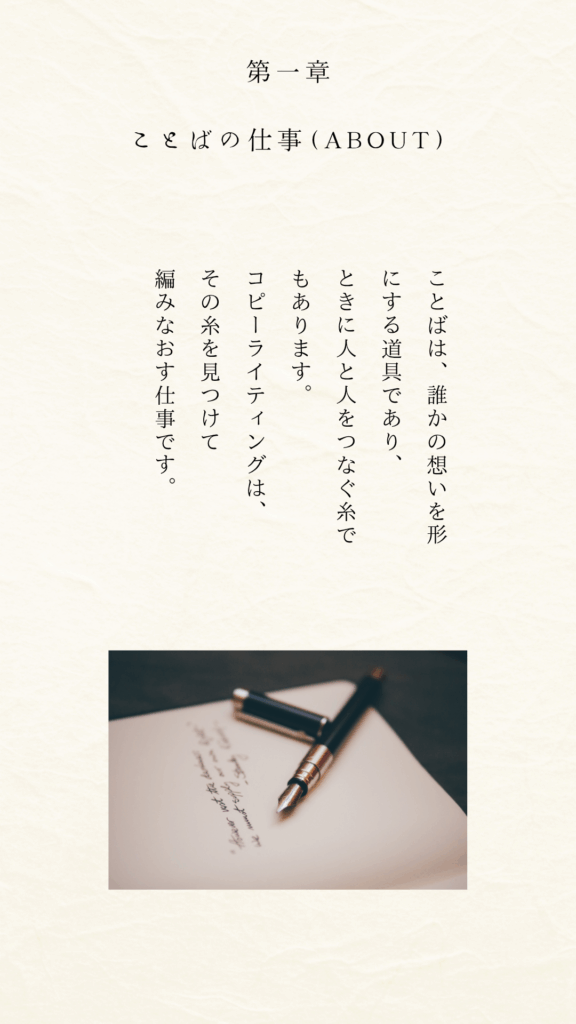 第一章
ことばの仕事(ABOUT)
ことばは、誰かの想いを形
にする道具であり、
ときに人と人をつなぐ糸で
もあります。
コピーライティングは、
その糸を見つけて
編みなおす仕事です。